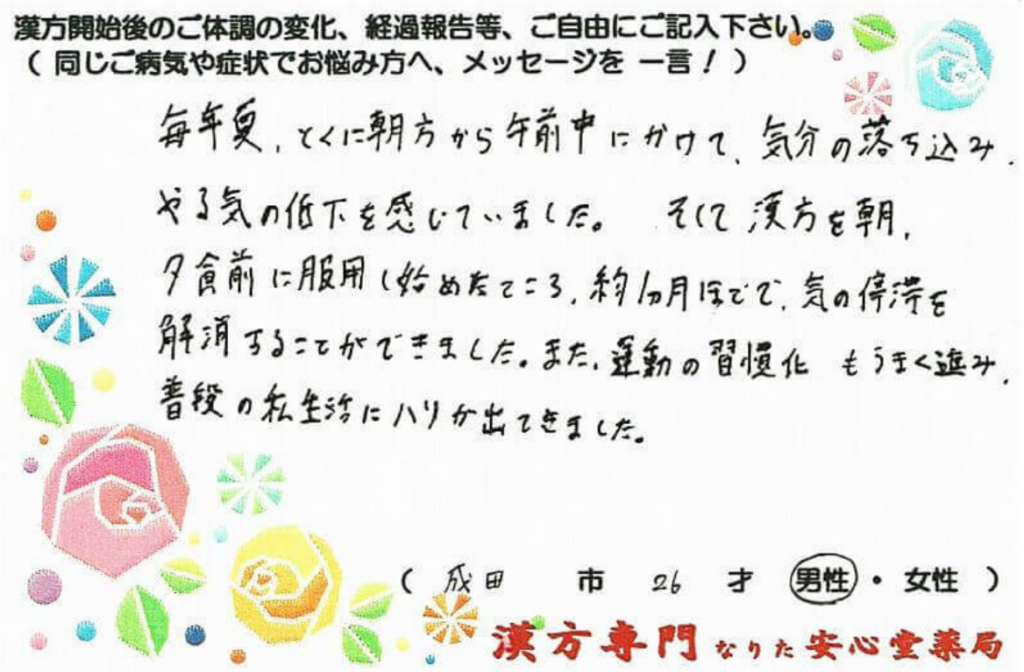 漢方開始後のご体調の変化、経過報告等、ご自由にご記入下さい。
（ 同じご病気や症状でお悩み方へ、メッセージを 一言！ ）
毎年夏、とくに朝方から午前中にかけて、気分の落ち込み、
やる気の低下を感じていました。 そして漢方を朝、
夕食前に服用し始めたところ、約1カ月ほどで、気の停滞を
解消することができました。また、運動の習慣化 もうまく進み、
普段の私生活にハリが出てきました。
（ 成田 市 26 才 男性・女性 ）
漢方専門 なりた 安心堂薬局